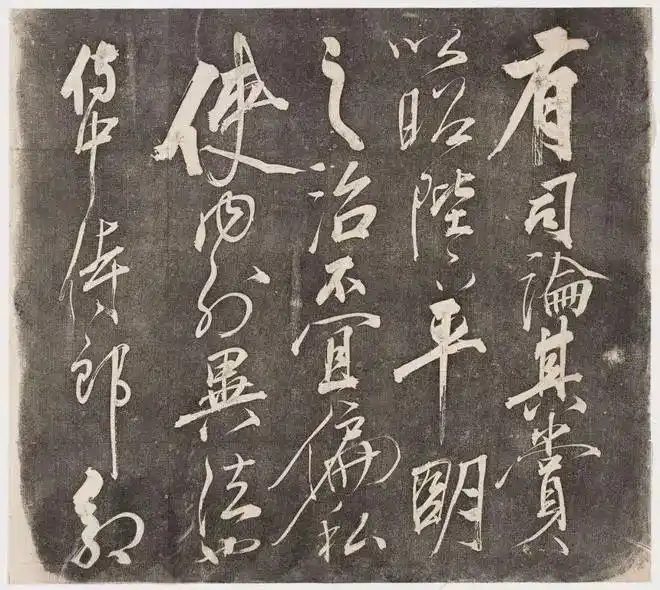 有司論其賞
以昭陛下平明
之治不宜偏私
使內外異法也
侍中侍郎郭